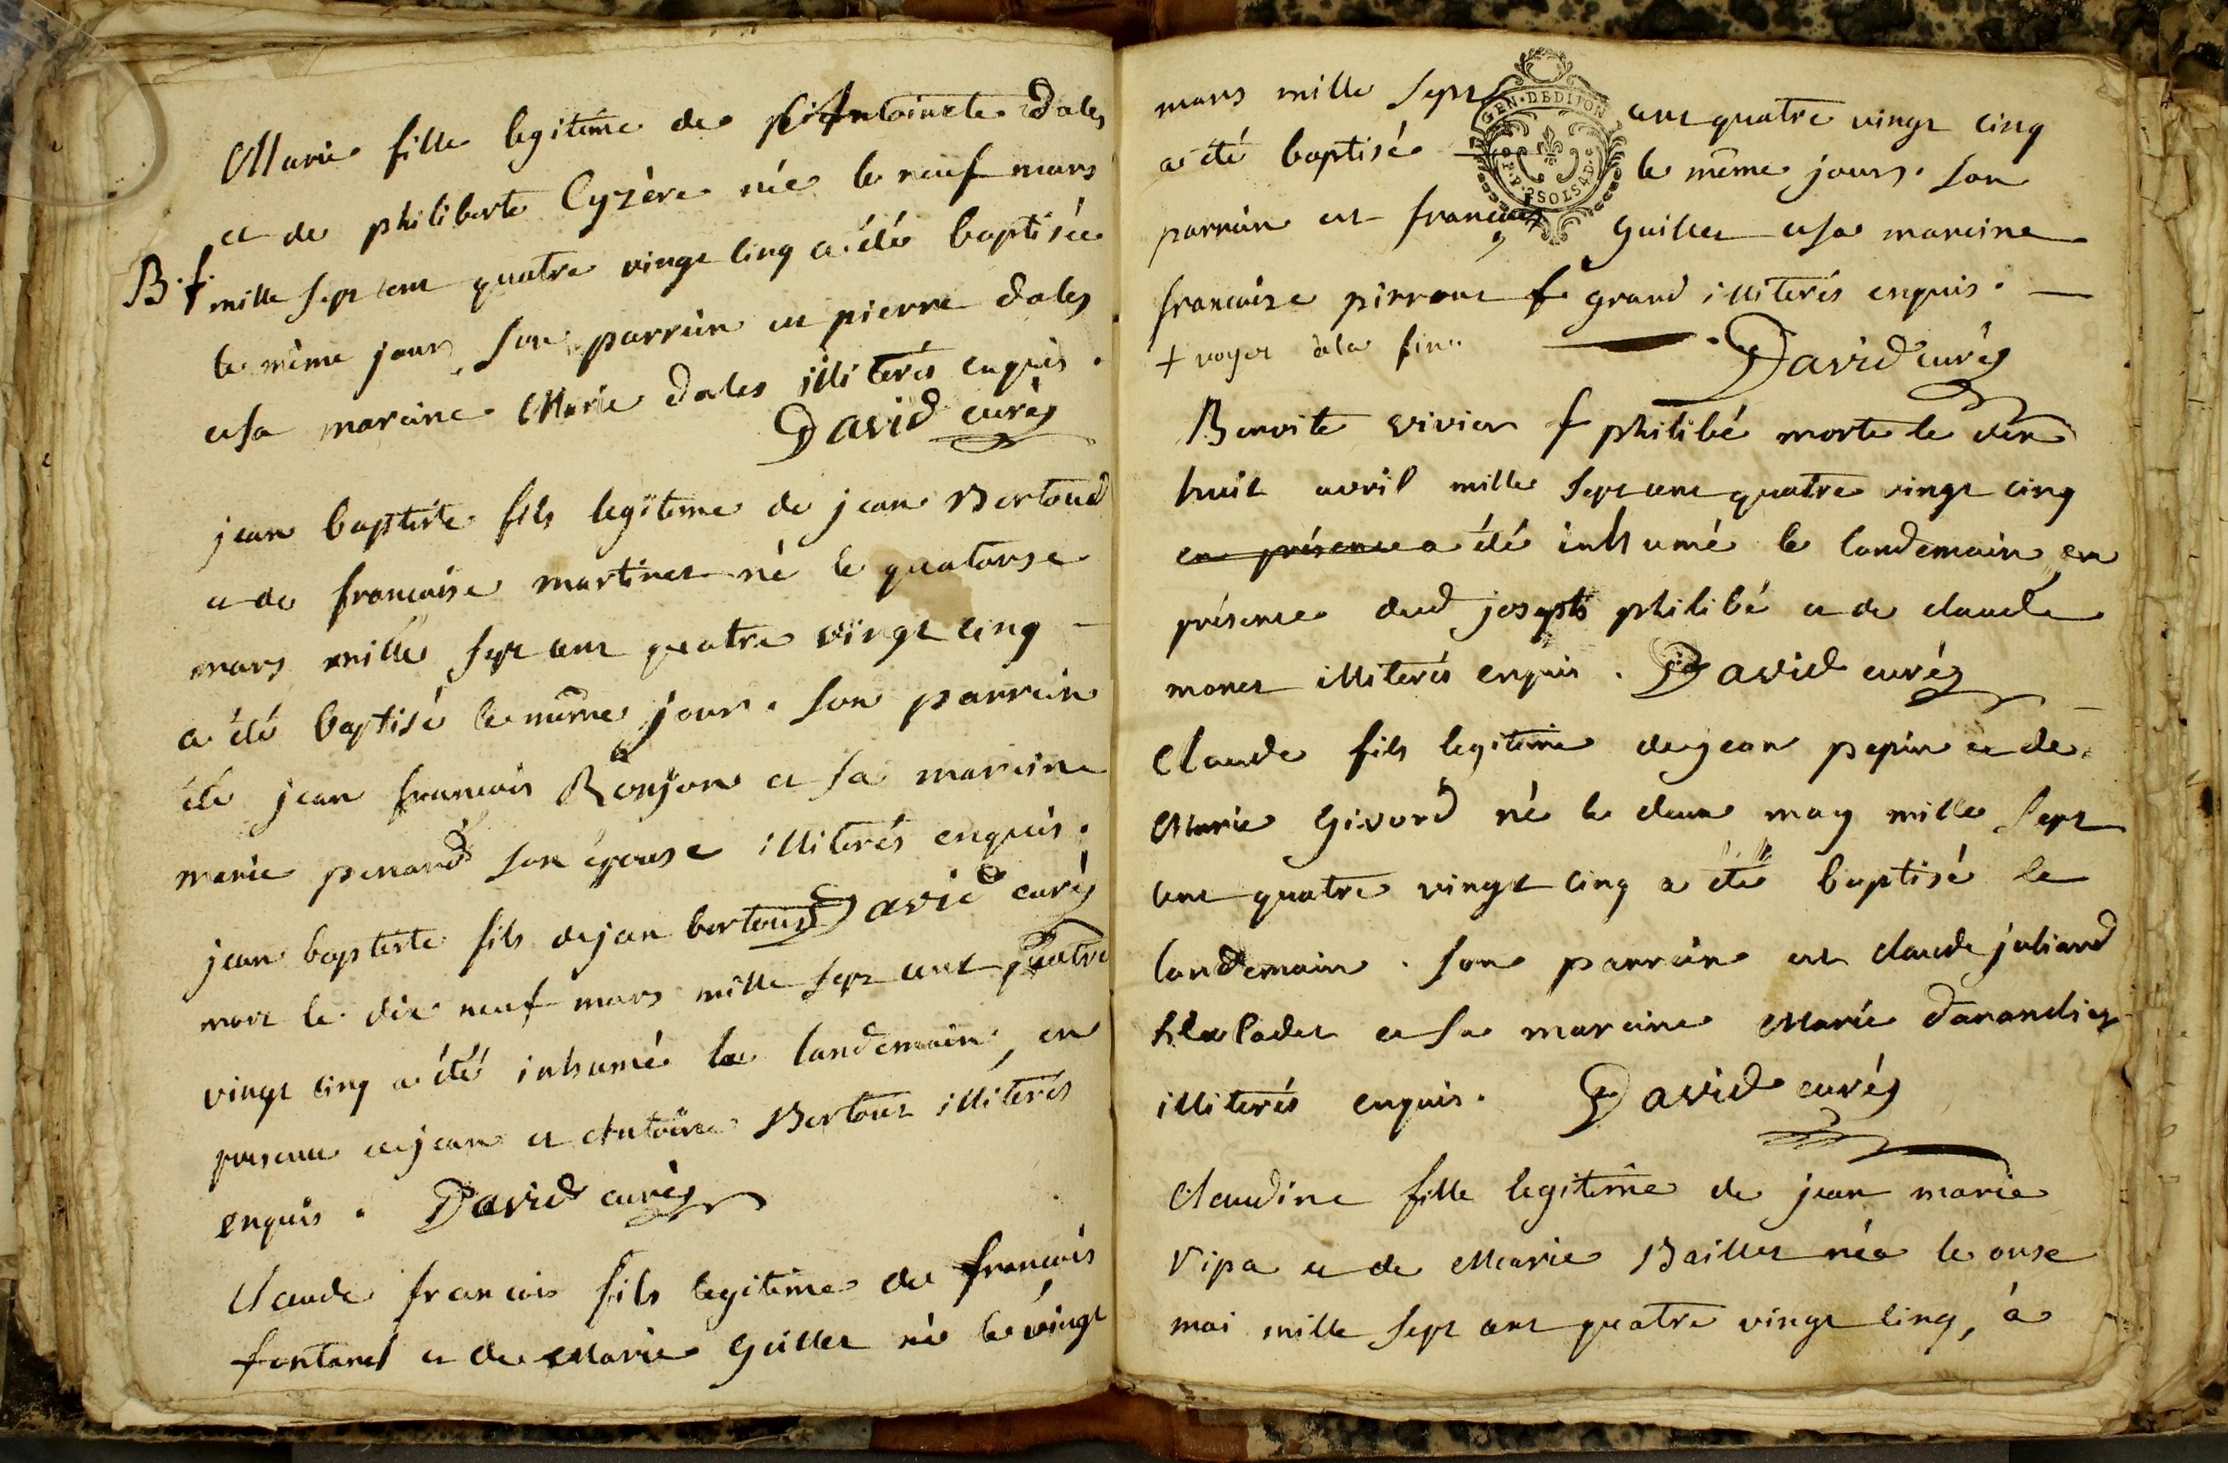 Marie fille legitime de Antoinete Dales
et de philiberte Cyzère née le neuf mars
B. f. mille sept cent quatre vingt cinq a été baptisée
le même jour, son parrain est pierre dales
et sa maraine Marie dales illiterés enquis.
David curés
jean baptiste fils legitime de jean Bertoud
et de francoise martinet né le quatorse
mars mille sept cent quatre vingt cinq
a été baptisé le même jour. son parrain
été jean francois Ronjon et sa maraine
marie penard son épouse illiterés enquis.
jean baptiste fils de jean bertoud David curés
mort le dix neuf mars mille sept cent quatre
vingt cinq a été inhumé le landemain, en
presence de jean et Antoine Bertout illiterés
enquis. David curés
Claude francois fils legitime de francois
fontanel et de Marie Guillet né le vingt
mars mille sept cent quatre vingt cinq
GEN·DE DIJON
2 SOLS 4 D.
a été baptisé le même jours. son
parrain est francois Guillet et sa maraine
francoise pirrout f grand illiterés enquis.
+ voyez à la fin. David curés
Benoite vivier f philibé morte le dix
huit avril mille sept cent quatre vingt cinq
en présence a été inhumé le landemain, en
présence dud joseph philibé et de claude
monet illiterés enquis. David curés
Claude fils legitime de jean pepin et de
Marie Givord né le deux may mille sept
cent quatre vingt cinq a été baptisé le
landemain. son parrain est claude juliard
le cadet et sa maraine Marie darandier
illiterés enquis. David curés
Claudine fille legitime de jean marie
Vipa et de Marie Baillet née le onse
mai mille sept cent quatre vingt cinq, à